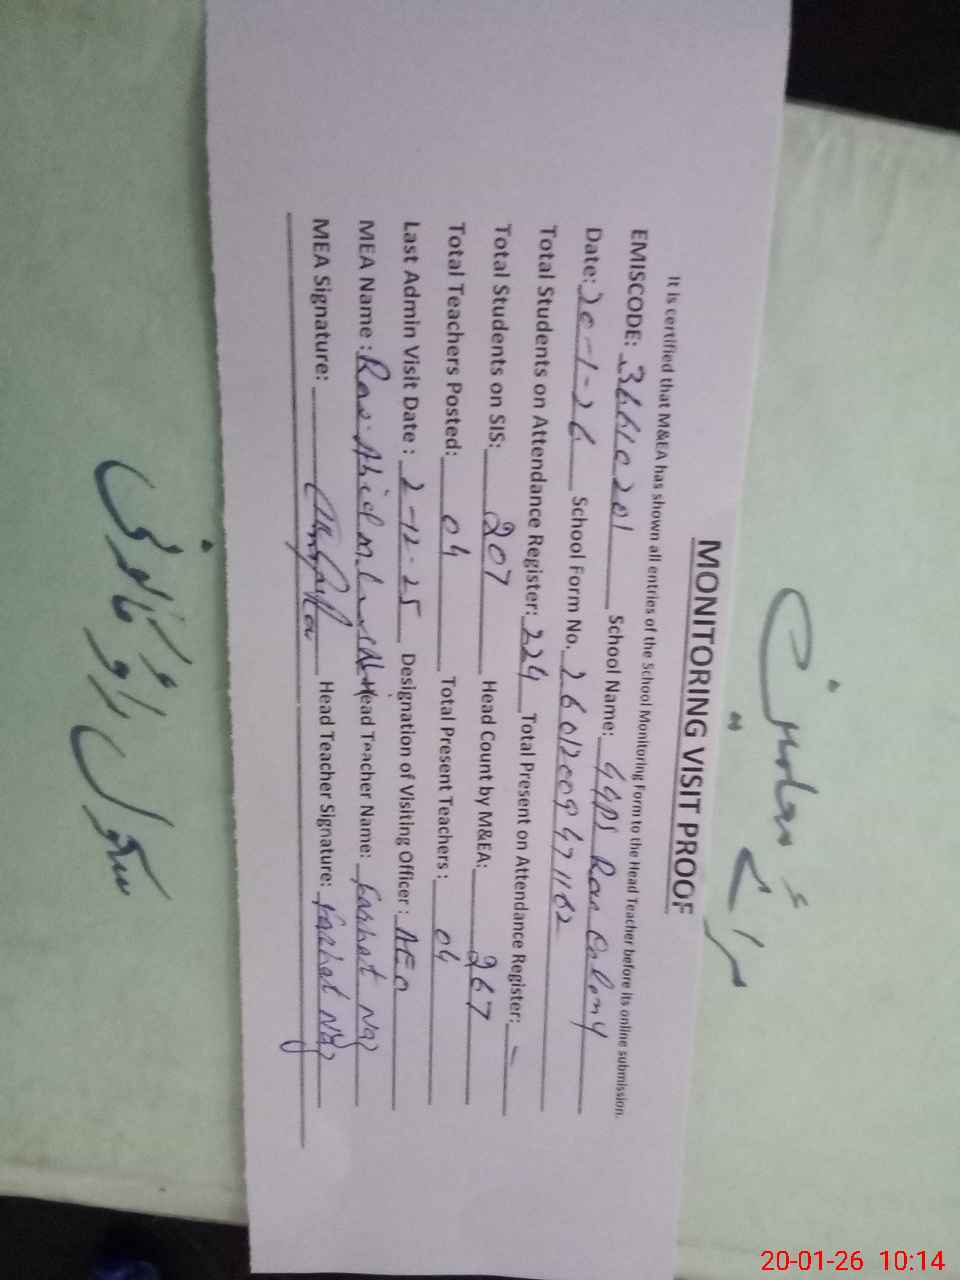 MONITORING VISIT PROOF
It is certified that M&EA has shown all entries of the School Monitoring Form to the Head Teacher before its online submission.
EMISCODE: 36610201 School Name: GGPS Rao Colony
Date: 20-1-26 School Form No. 26012009471162
Total Students on Attendance Register: 224 Total Present on Attendance Register: -
Total Students on SIS: 207 Head Count by M&EA: 267
Total Teachers Posted: 04 Total Present Teachers: 04
Last Admin Visit Date: 2-12-25 Designation of Visiting Officer: AEO
MEA Name: Rao Abid Head Teacher Name: Farhat Naz
MEA Signature: Head Teacher Signature: Farhat Naz
سکول راؤ کالونی
20-01-26 10:14